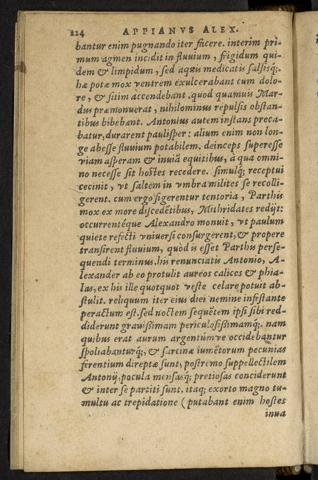 224 APPIANVS ALEX.
bantur enim pugnando iter facere. interim pri-
mum agmen incidit in fluuium, frigidum qui-
dem & limpidum, sed aquis medicatis salsisq́;.
hæ potæ mox ventrem exulcerabant cum dolo-
re, & sitim accendebant. quod quamuis Mar-
dus præmonuerat, nihilominus repulsis obstan-
tibus bibebant. Antonius autem instans preca-
batur, durarent paulisper: alium enim non lon-
ge abesse fluuium potabilem. deinceps superesse
viam asperam & inuiã equitibus, a qua omni-
no necesse sit hostes recedere. simulq́; receptui
cecinit, vt saltem in vmbra milites se recolli-
gerent. cum ergo figerentur tentoria, Parthis
mox ex more discedẽtibus, Mithridates redijt:
occurrentéque Alexandro monuit, vt paulum
quiete refecti vniuersi consurgerent, & propere
transirent fluuium, quòd is esset Parthis perse-
quendi terminus. his renunciatis Antonio, A-
lexander ab eo protulit aureos calices & phia-
las, ex his ille quotquot veste celare potuit ab-
stulit. reliquum iter eius diei nemine infestante
peractum est. sed noctem sequẽtem ipsi sibi red-
diderunt grauissimam periculosissimamq́;. nam
quibus erat aurum argentúmve occidebantur
spoliabanturq́;, & sarcinæ iumẽtorum pecunias
ferentium direptæ sunt, postremo suppellectilem
Antonij, pocula mensasq́; pretiosas conciderunt
& inter se partiti sunt. itaq; exorto magno tu-
multu ac trepidatione (putabant enim hostes
inua